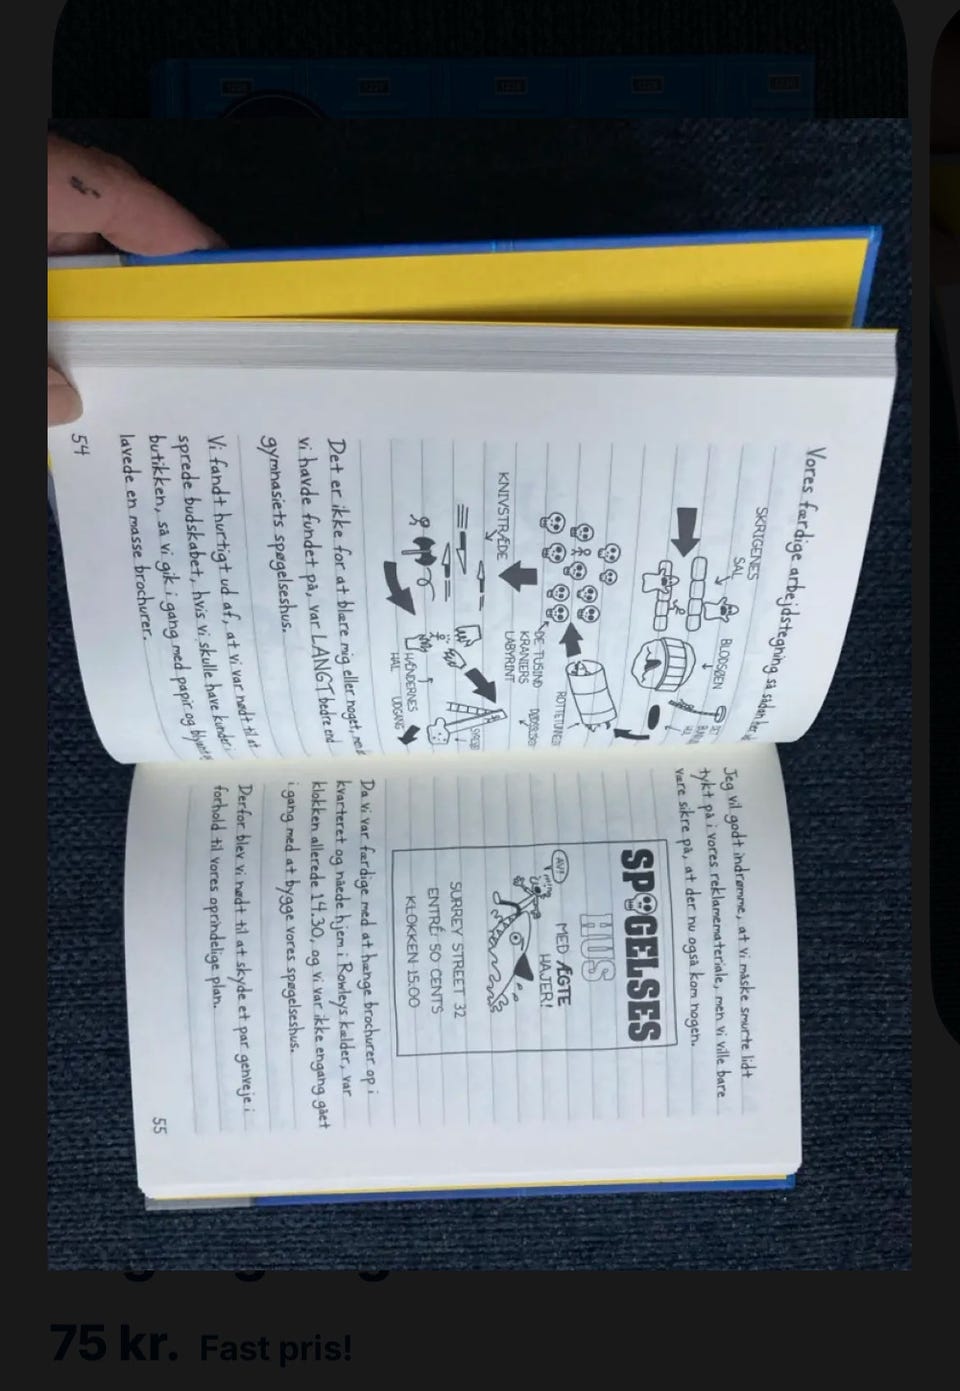 Vores færdige arbejdstegning så sådan her
SKRIGENES
SAL
BLODSØEN
DE TUSIND
KRANIERS
LABYRINT
KNIVSTRÆDE
HÆNDERNES
HAL
UDGANG
Det er ikke for at blære mig eller noget, men det
vi havde fundet på, var LANGT bedre end
gymnasiets spøgelseshus.
Vi fandt hurtigt ud af, at vi var nødt til at
sprede budskabet, hvis vi skulle have kunder i
butikken, så vi gik i gang med papir og blyant og
lavede en masse brochurer.
54
Jeg vil godt indrømme, at vi måske smurte lidt
tykt på i vores reklamemateriale, men vi ville bare
være sikre på, at der nu også kom nogen.
SPØGELSES
HUS
MED ÆGTE
HAJER!
AV!
SURREY STREET 32
ENTRÉ: 50 CENTS
KLOKKEN 15.00
Da vi var færdige med at hænge brochurer op i
kvarteret og nåede hjem i Rowleys kælder, var
klokken allerede 14.30, og vi var ikke engang gået
i gang med at bygge vores spøgelseshus.
Derfor blev vi nødt til at skyde et par genveje i
forhold til vores oprindelige plan.
55
75 kr. Fast pris!